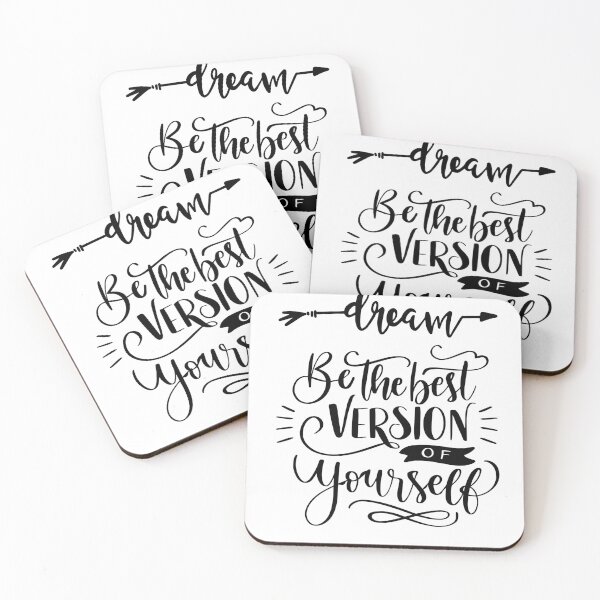 dream
Be the best
VERSION
OF
dream
Be the best
VERSION
OF
Yourself
dream
Be the best
VERSION
dream
Be the best
VERSION
OF
Yourself